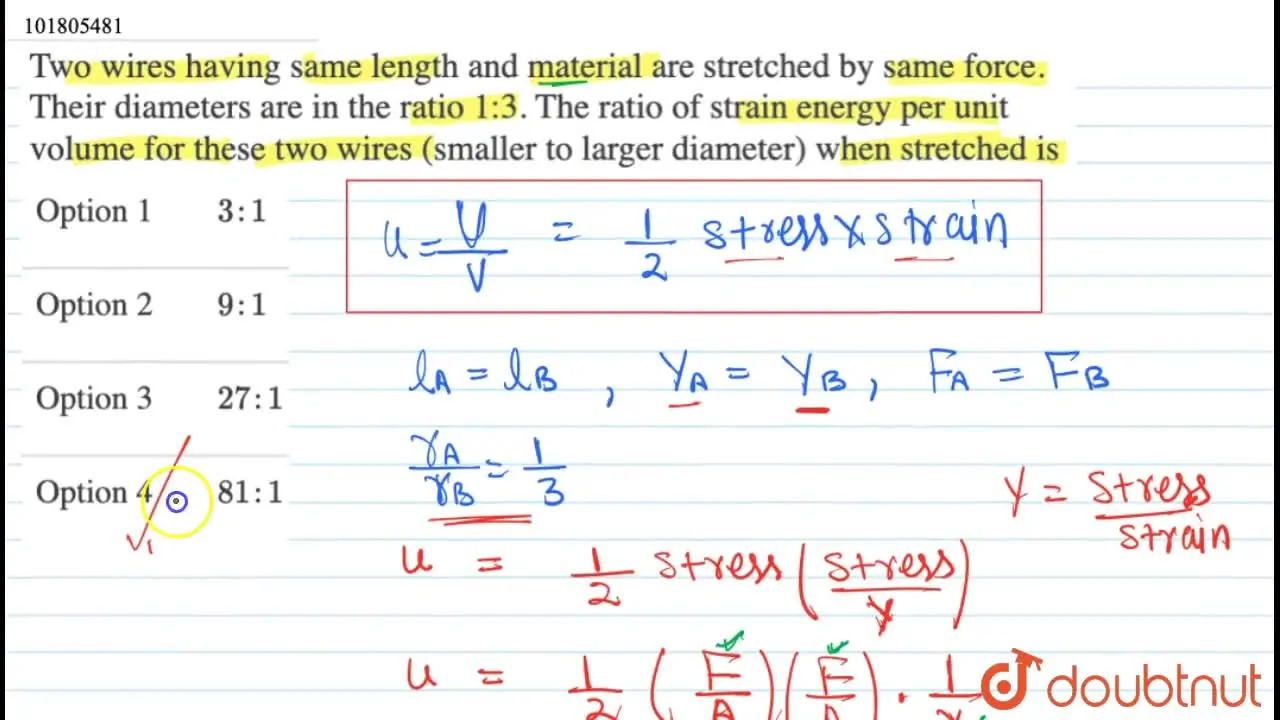 101805481
Two wires having same length and material are stretched by same force.
Their diameters are in the ratio 1:3. The ratio of strain energy per unit
volume for these two wires (smaller to larger diameter) when stretched is
Option 1 3:1
u = U/V = 1/2 stress × strain
Option 2 9:1
lA = lB , YA = YB , FA = FB
Option 3 27:1
rA/rB = 1/3
Option 4 81:1
Y = stress/strain
u = 1/2 stress (stress/Y)
u = 1/2 (F/A)(F/A) . 1/Y
doubtnut